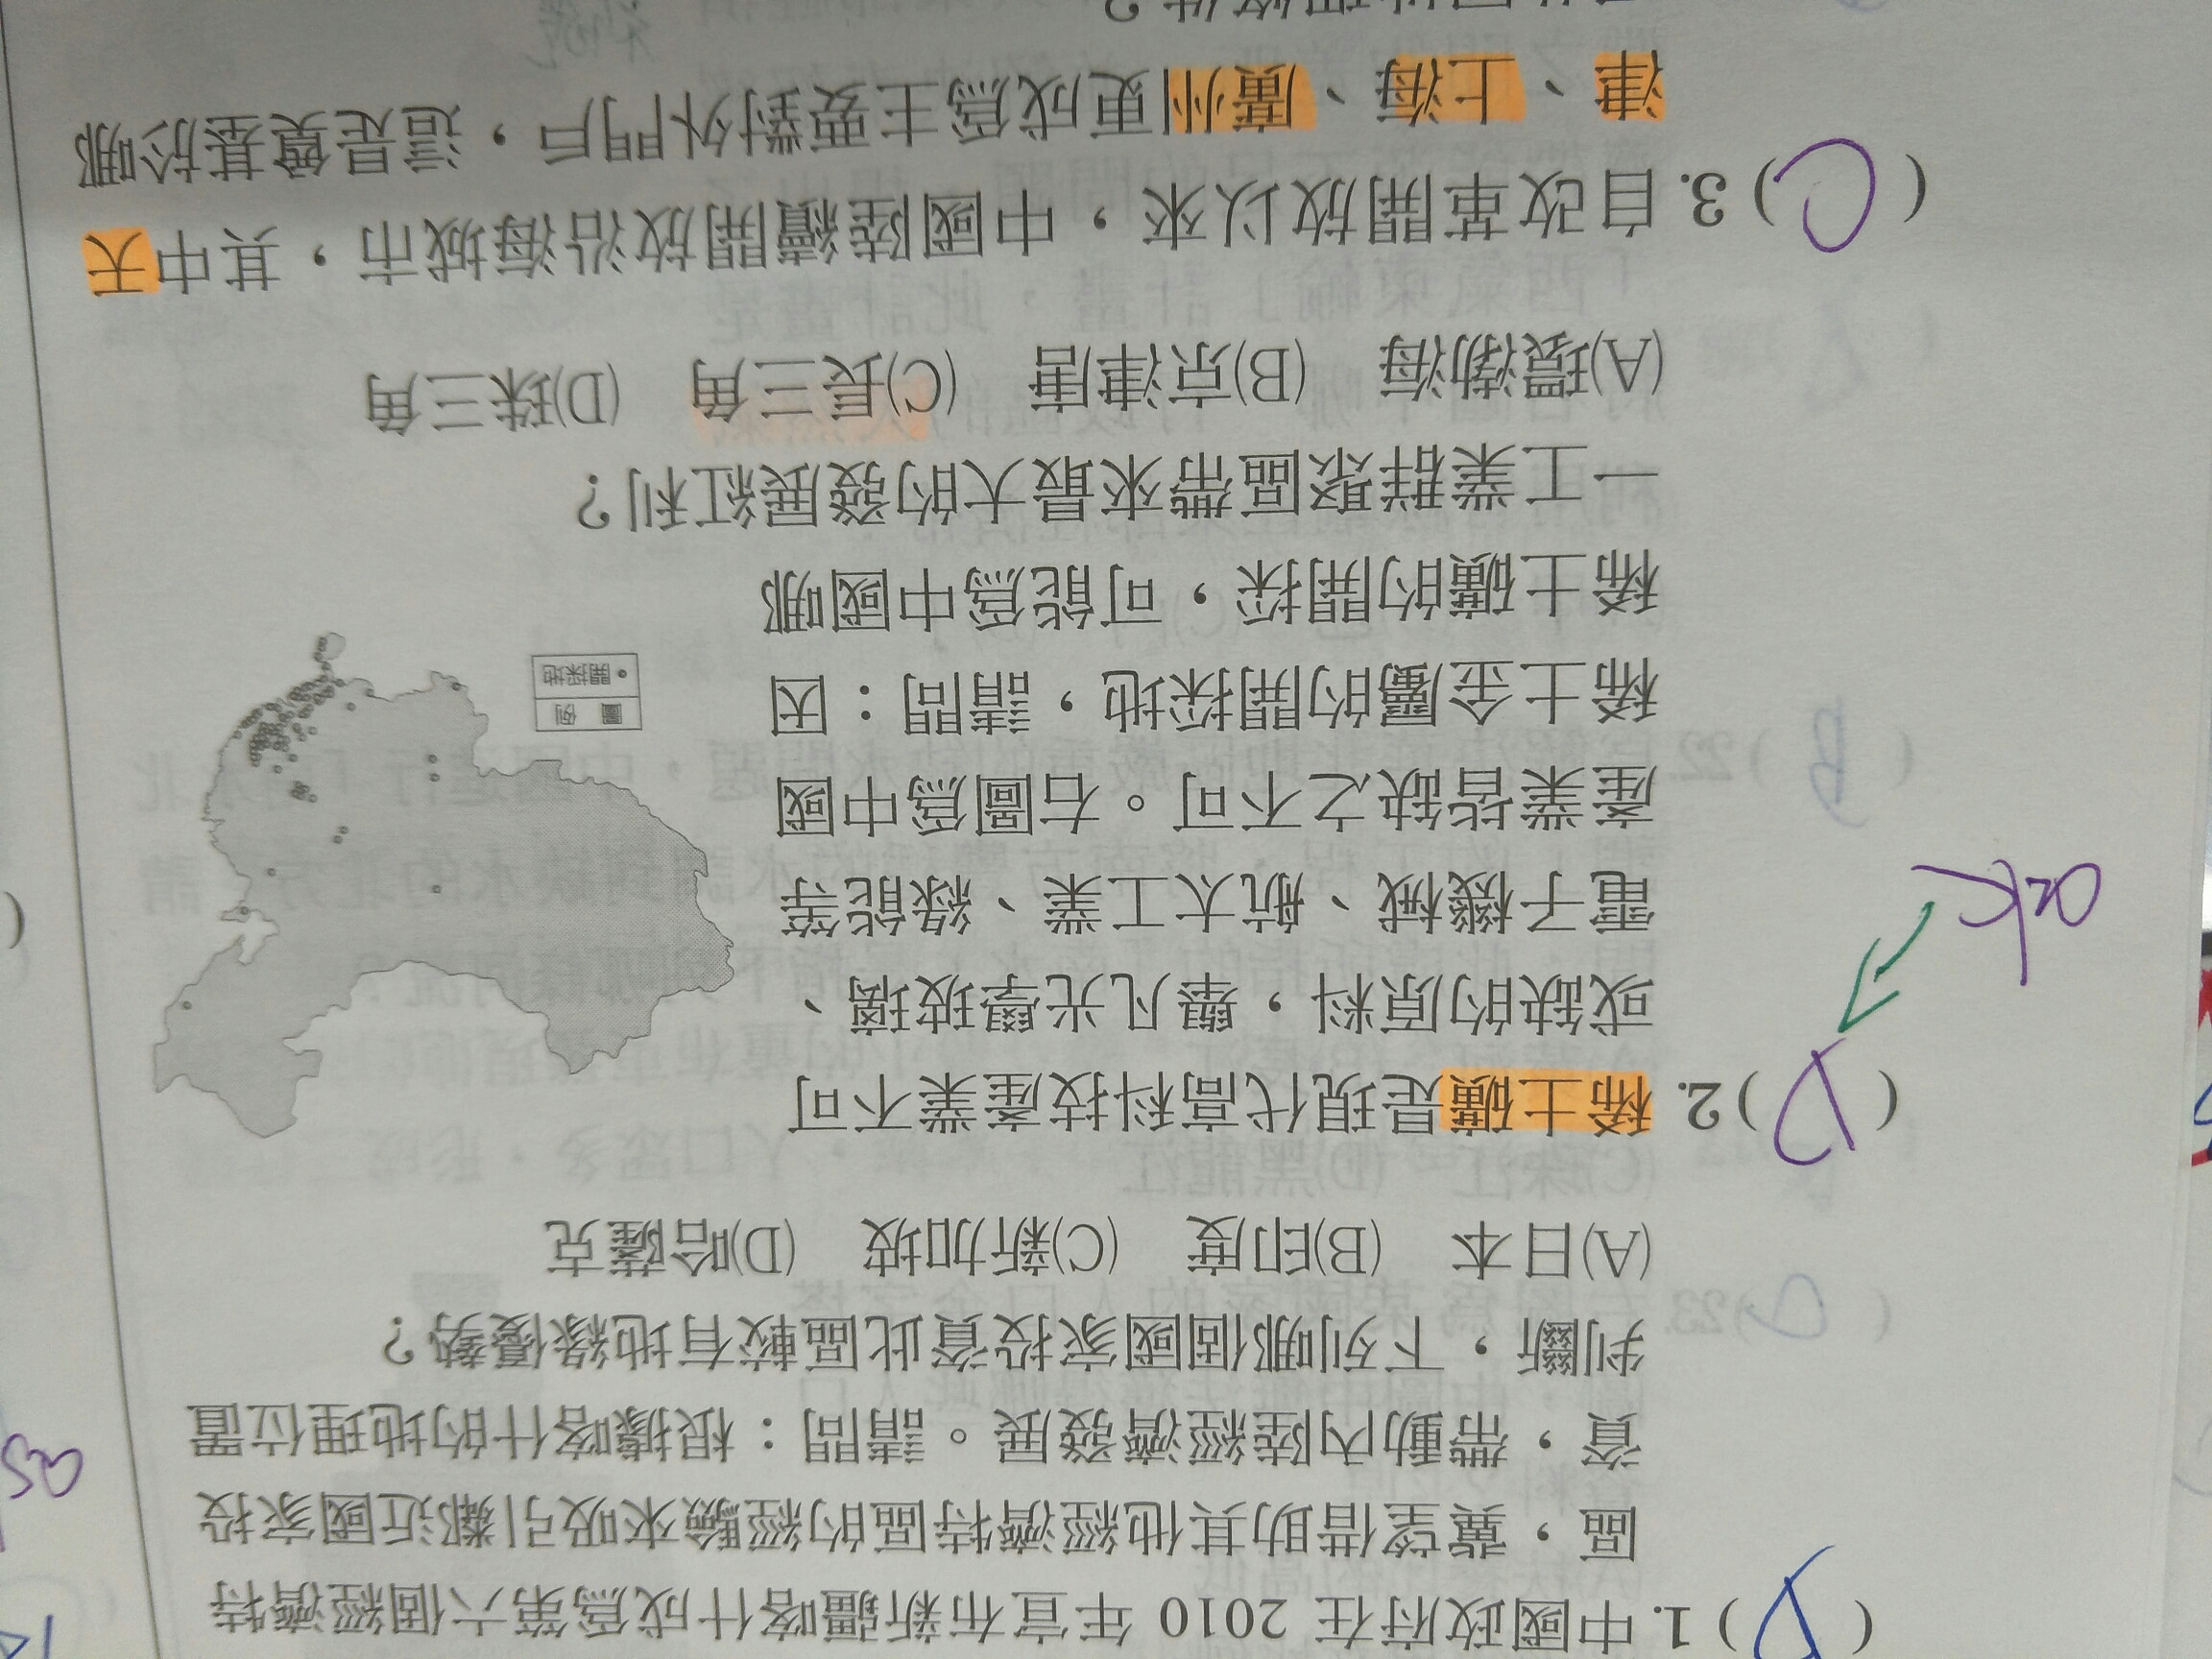 ( D ) 1. 中國政府在 2010 年宣布新疆喀什成為第六個經濟特
區，冀望借助其他經濟特區的經驗來吸引鄰近國家投
資，帶動內陸經濟發展。請問：根據喀什的地理位置
判斷，下列哪個國家投資此區較有地緣優勢？
(A)日本 (B)印度 (C)新加坡 (D)哈薩克
( D ) 2. 稀土礦是現代高科技產業不可
或缺的原料，舉凡光學玻璃、
電子機械、航太工業、綠能等
產業皆缺之不可。右圖為中國
稀土金屬的開採地，請問：因
稀土礦的開採，可能為中國哪
一工業群聚區帶來最大的發展紅利？
(A)環渤海 (B)京津唐 (C)長三角 (D)珠三角
圖 例
• 開採地
( C ) 3. 自改革開放以來，中國陸續開放沿海城市，其中天
津、上海、廣州更成為主要對外門戶，這是奠基於哪